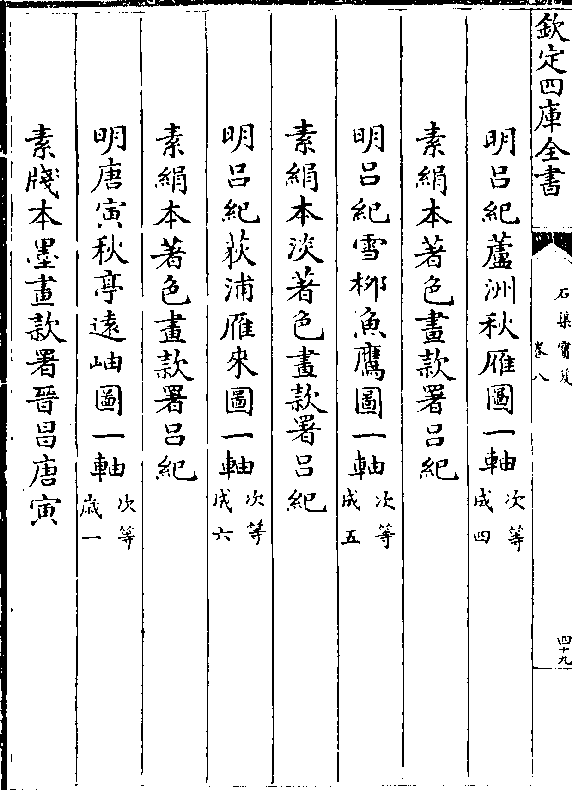 欽定四庫全書
石渠寶笈
卷八
四十九
明呂紀蘆洲秋雁圖一軸次等成四
素絹本著色畫款署呂紀
明呂紀雪柳魚鷹圖一軸次等成五
素絹本淡著色畫款署呂紀
明呂紀荻浦雁來圖一軸次等成六
素絹本著色畫款署呂紀
明唐寅秋亭遠岫圖一軸次等歳一
素牋本墨畫款署晉昌唐寅